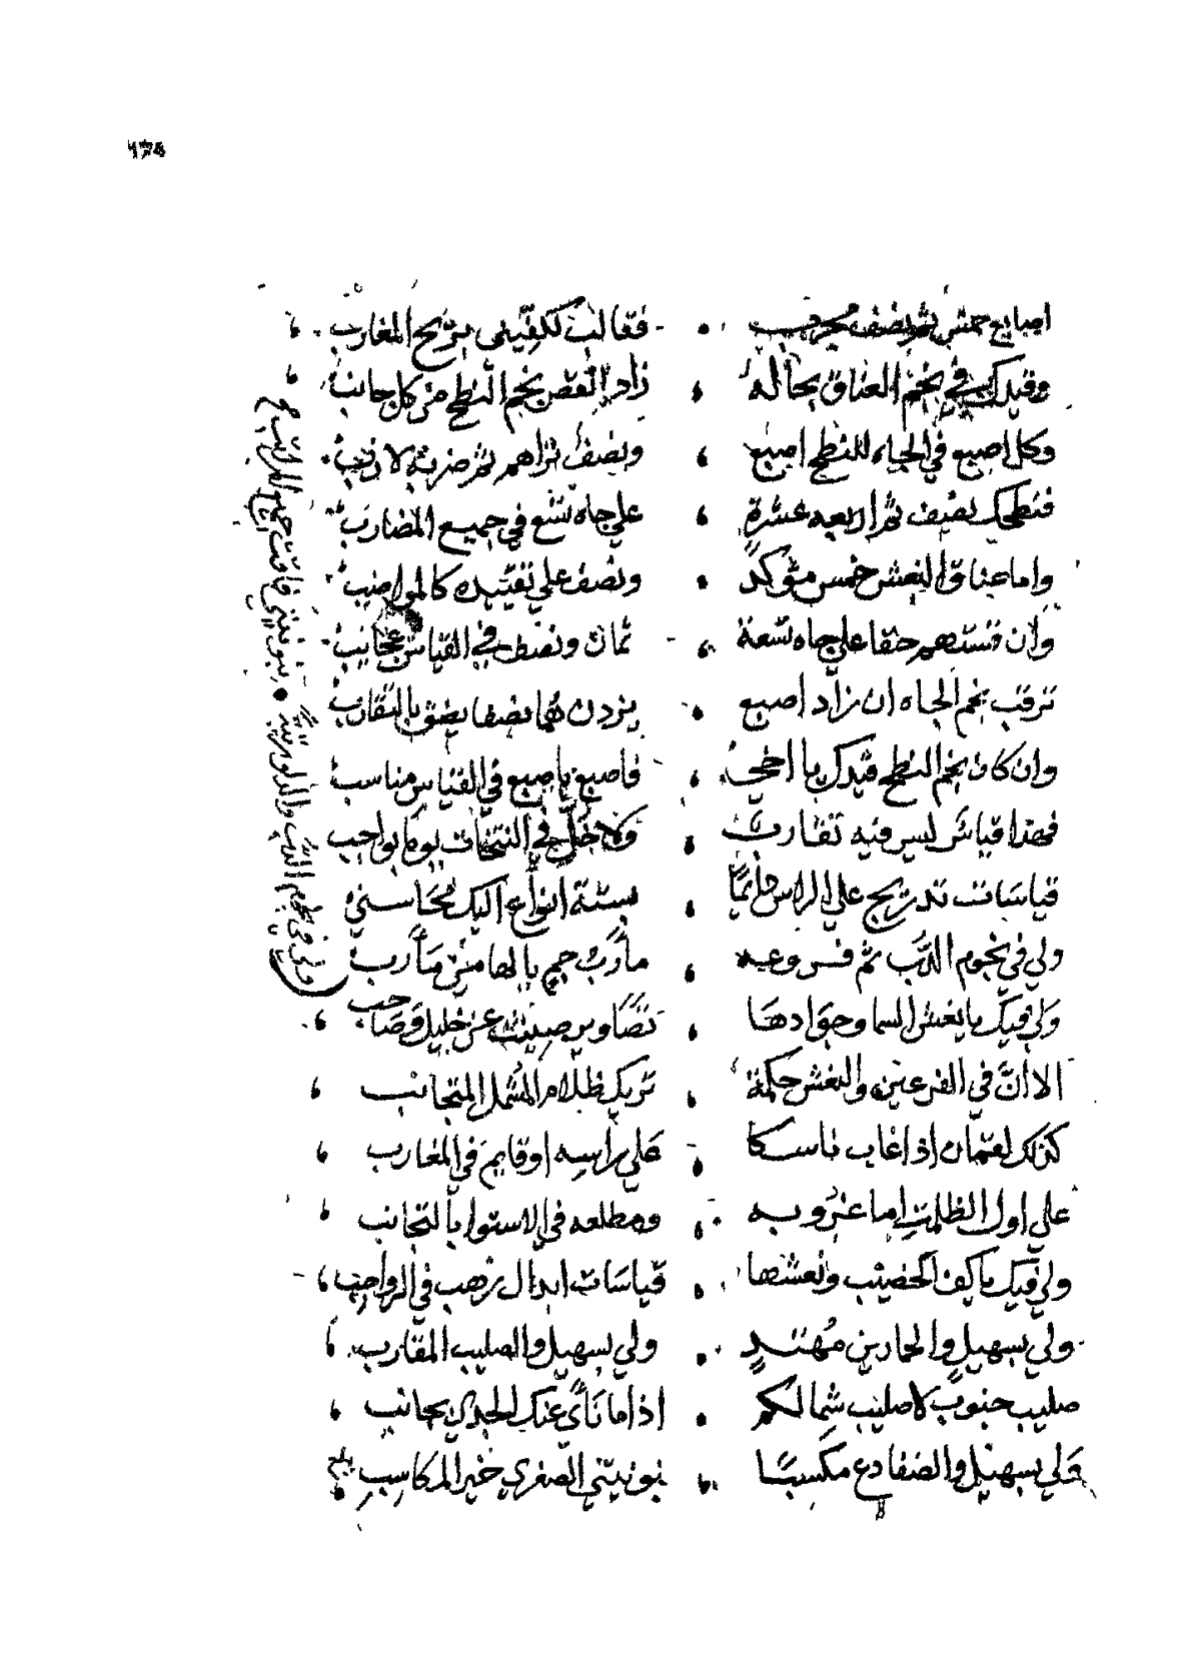 اصابع خمس ثم نصف مجرب فقالت لكفيني بريح المغارب
وقيدك في نجم العناق بحاله زاد القص نجم النطح من كل جانب
وكل اصبع في الجاه للنطح اصبع ونصف تراهم ثم ضربة لازب
فنطحك نصيف ثم اربعه عشرة على جاه تسع في جميع المضارب
واما عناق النعش خمس مؤكد ونصف على تقييده كالمواضب
وان قستهم حقا على جاه تسعة ثمان ونصف في القياس عجايب
ترقب نجم الجاه ان زاد اصبع يزدن هما نصفا بالتقارب
وان كان نجم النطح قيدك يا اخي فاصبع باصبع في القياس مناسب
فهذا قياس ليس فيه تقارب ولا خلل في النتخات يوما بواجب
قياسات تدريج على الراس دايمًا بستة انواع اليك محاسني
ولي في نجوم الدب ثم فروعه مأرب جم يالها من مأرب
ولي فيك يا نعش السما وحوادها تصاوير صينت عن خليل وصاحب
الا ان في الفرعين والنعش حكمة تريك ظلام المشمل المتجانب
كذلك لعمان اذا غاب ناسكا على راسه اوقايم في المغارب
على اول الظلمات اما غروبه ومطلعه في الاستوا بالتجانب
ولي فيك يا كف الخضيب ونعشها قياسات ابدال تزهب في الرواجب
ولي بسهيل والحمارين مهتدٍ ولي بسهيل والصليب المقارب
صليب جنوب لا صليب شمالكم اذا ما نأى عنك الجدي بجانب
ولي بسهيل والضفادع مكسبًا نيوزيتي الصغرى خير المكاسب
ولي في نجوم الدب والدلو فاقت جميع المراتب